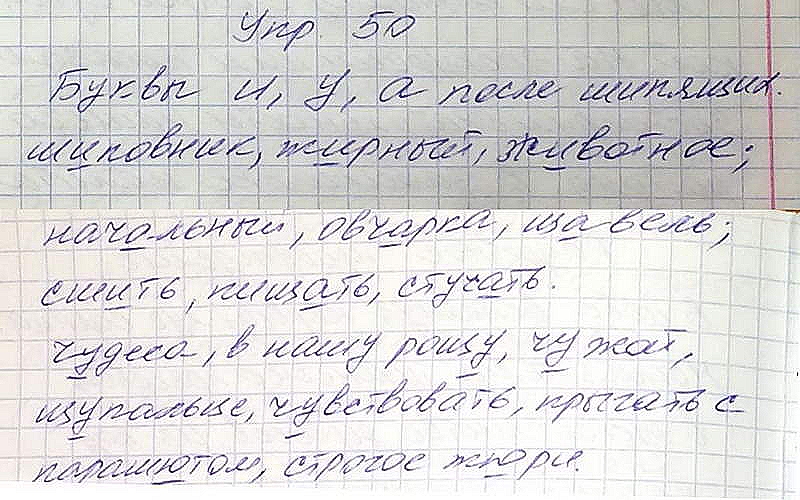 Упр. 50
Буквы и, у, а после шипящих.
шиповник, жирный, животное;
начальный, овчарка, щавель;
сшить, пищать, стучать.
чудеса, в нашу рощу, чужой,
щупальце, чувствовать, прыгать с
парашютом, строгое жюри.